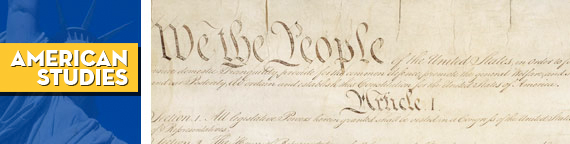 AMERICAN
STUDIES
We the People of the United States, in order to
provide for the common defence, promote the general Welfare, and
and establish this Constitution for the United States of America.
Article I
Section 1. All legislative Powers herein granted shall be vested in a Congress of the United States
Representatives.
Section 2. The House of Representatives